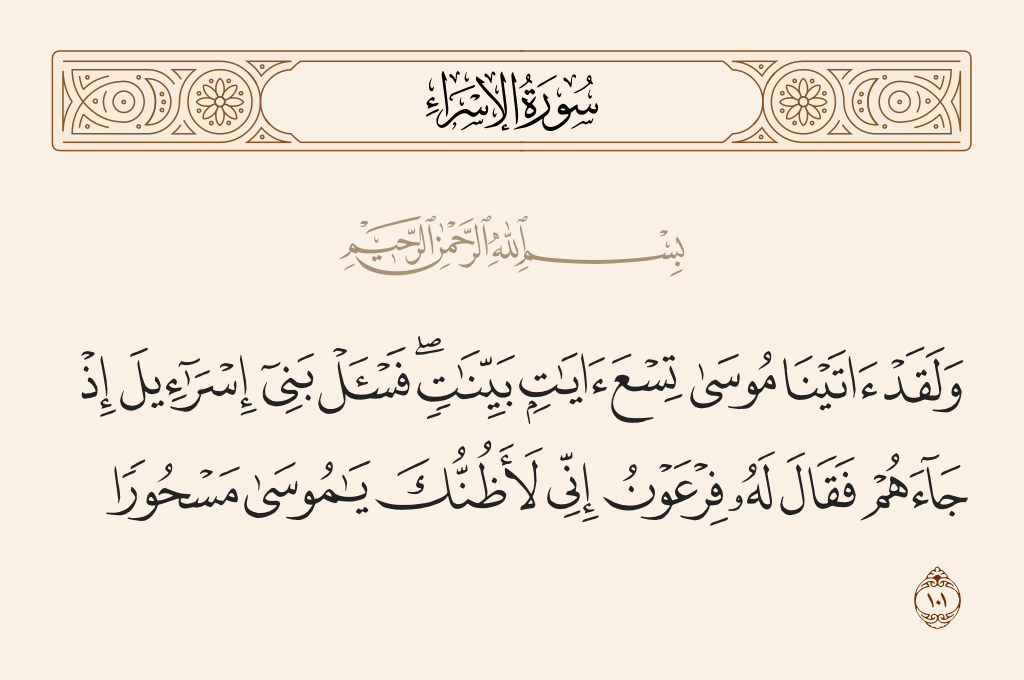 سُورَةُ الإِسْرَاءِ
بِسْمِ ٱللَّهِ ٱلرَّحْمَٰنِ ٱلرَّحِيمِ
وَلَقَدْ ءَاتَيْنَا مُوسَىٰ تِسْعَ ءَايَـٰتٍۭ بَيِّنَـٰتٍ ۖ فَسْـَٔلْ بَنِىٓ إِسْرَٰٓءِيلَ إِذْ
جَآءَهُمْ فَقَالَ لَهُۥ فِرْعَوْنُ إِنِّى لَأَظُنُّكَ يَـٰمُوسَىٰ مَسْحُورًا
١٠١